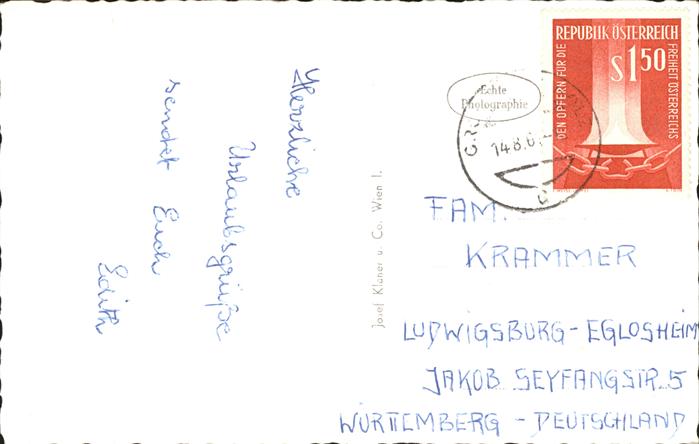 Herzliche
Urlaubsgrüße
sendet Euch
Edith
Josef Klaner u. Co. Wien I.
Echte
Photographie
14.8.6
c
REPUBLIK ÖSTERREICH
S 1.50
DEN OPFERN FÜR DIE
FREIHEIT ÖSTERREICHS
FAM.
KRAMMER
LUDWIGSBURG-EGLOSHEIM
JAKOB SEYFANGSTR. 5
WÜRTTEMBERG - DEUTSCHLAND